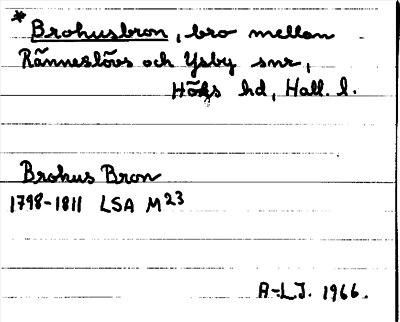 * Brohusbron, bro mellan
Ränneslövs och Ysby snr,
Höks hd, Hall. l.
Brohus Bron
1798-1811 LSA M23
A-LJ. 1966.